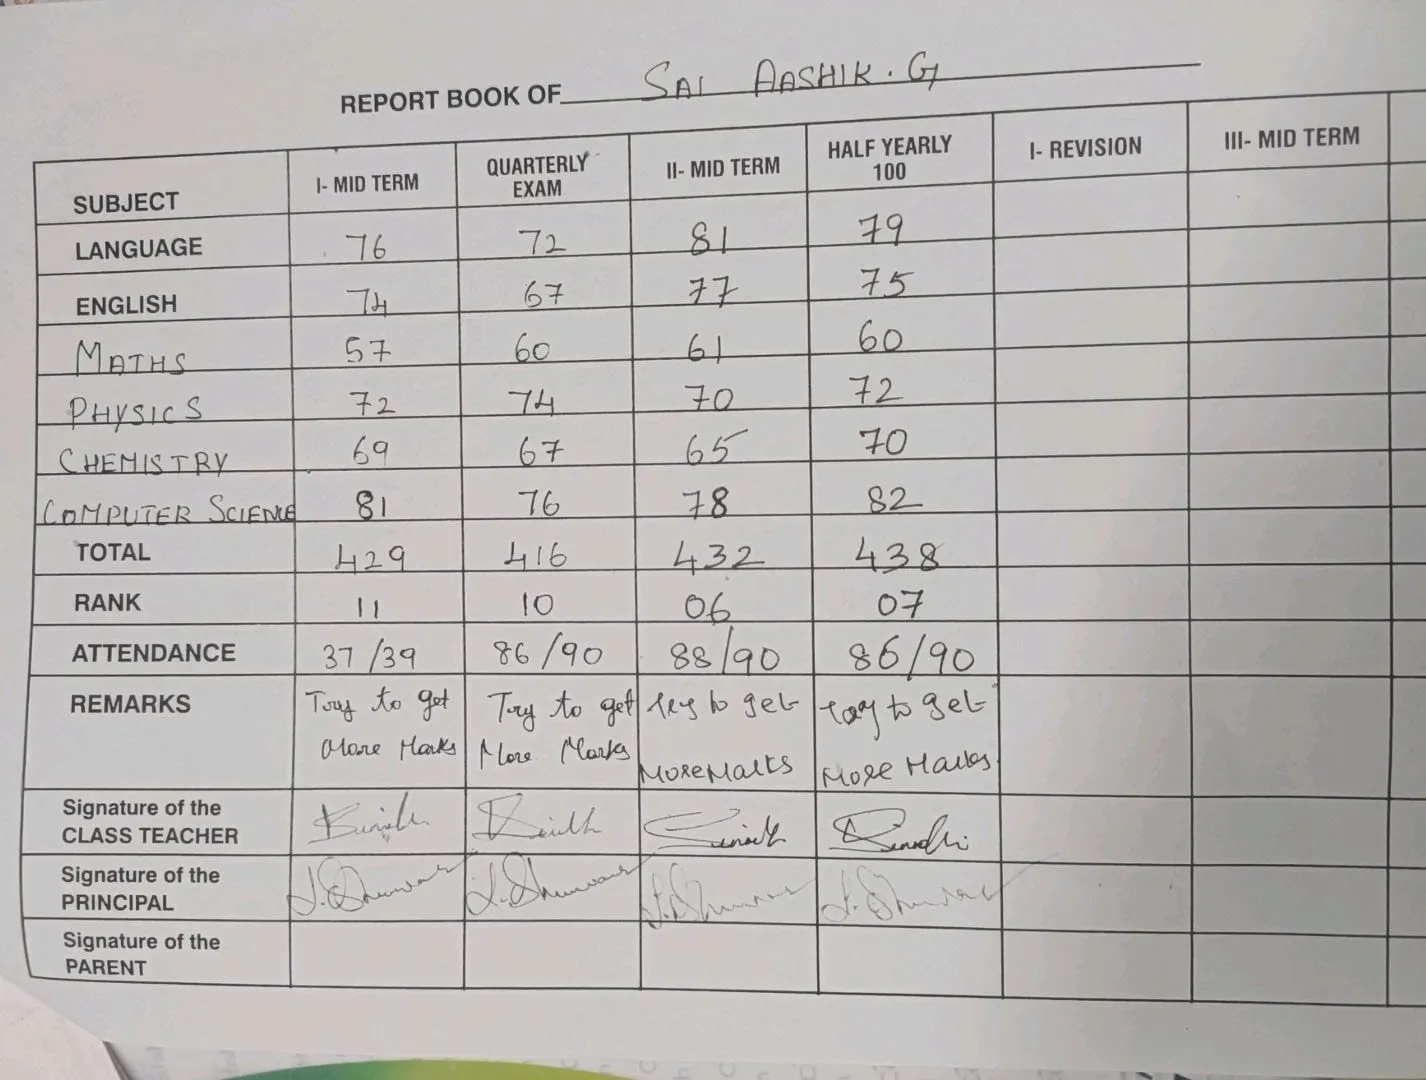 REPORT BOOK OF SAI AASHIK. G
SUBJECT I- MID TERM QUARTERLY EXAM II- MID TERM HALF YEARLY 100 I- REVISION III- MID TERM
LANGUAGE 76 72 81 79
ENGLISH 74 67 77 75
MATHS 57 60 61 60
PHYSICS 72 74 70 72
CHEMISTRY 69 67 65 70
COMPUTER SCIENCE 81 76 78 82
TOTAL 429 416 432 438
RANK 11 10 06 07
ATTENDANCE 37/39 86/90 88/90 86/90
REMARKS Try to get Try to get Try to get Try to get
More Marks More Marks More Marks More Marks
Signature of the
CLASS TEACHER
Signature of the
PRINCIPAL
Signature of the
PARENT